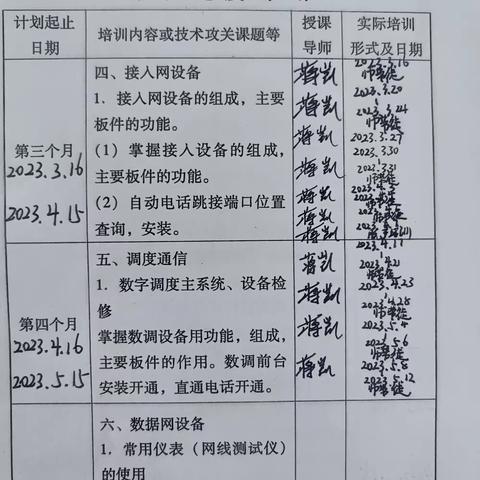 计划起止
日期
培训内容或技术攻关课题等
授课
导师
实际培训
形式及日期
第三个月
2023.3.16
2023.4.15
四、接入网设备
1. 接入网设备的组成，主要
板件的功能。
(1) 掌握接入设备的组成，
主要板件的功能。
(2) 自动电话跳接端口位置
查询，安装。
蒋凯
蒋凯
蒋凯
蒋凯
蒋凯
蒋凯
蒋凯
2023.3.16
师带徒
2023.3.20
2023.3.24
师带徒
2023.3.27
2023.3.30
2023.3.31
师带徒
2023.4.11
第四个月
2023.4.16
2023.5.15
五、调度通信
1. 数字调度主系统、设备检
修
掌握数调设备用功能，组成，
主要板件的作用。数调前台
安装开通，直通电话开通。
蒋凯
蒋凯
蒋凯
蒋凯
2023.4.21
师带徒
2023.4.23
2023.4.28
师带徒
2023.5.4
2023.5.6
师带徒
2023.5.8
2023.5.12
师带徒
六、数据网设备
1. 常用仪表（网线测试仪）
的使用